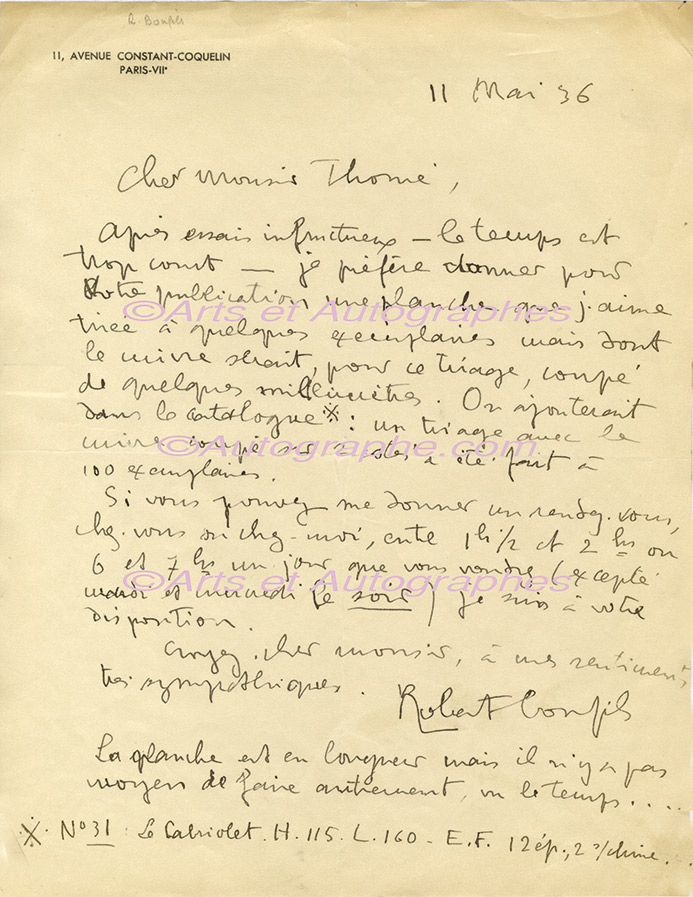 R. Bonfils
11, AVENUE CONSTANT-COQUELIN
PARIS-VIIe
11 Mai 36
Cher Monsieur Thomé,
Après essais infructueux — le temps est
trop court — je préfère donner pour
votre publication une planche que j'aime
©Arts et Autographes
tirée à quelques exemplaires mais dont
le cuivre serait, pour ce tirage, coupé
de quelques millimètres. On ajouterait
dans le catalogue ※ : un tirage avec le
cuivre coupé sur 2 côtés a été fait à
©Autographe.com
100 exemplaires.
Si vous pouvez me donner un rendez-vous,
chez-vous ou chez-moi, entre 1h 1/2 et 2 hrs ou
6 et 7 hrs un jour que vous voudrez (excepté
©Arts et Autographes
mardi et mercredi le soir) je suis à votre
disposition.
Croyez, cher monsieur, à mes sentiments
très sympathiques.
Robert Bonfils
La planche est en longueur mais il n'y a pas
moyen de faire autrement, vu le temps....
※. No 31 : Le Cabriolet. H. 115. L. 160 - E.F. 12 ép., 2 s/chine.